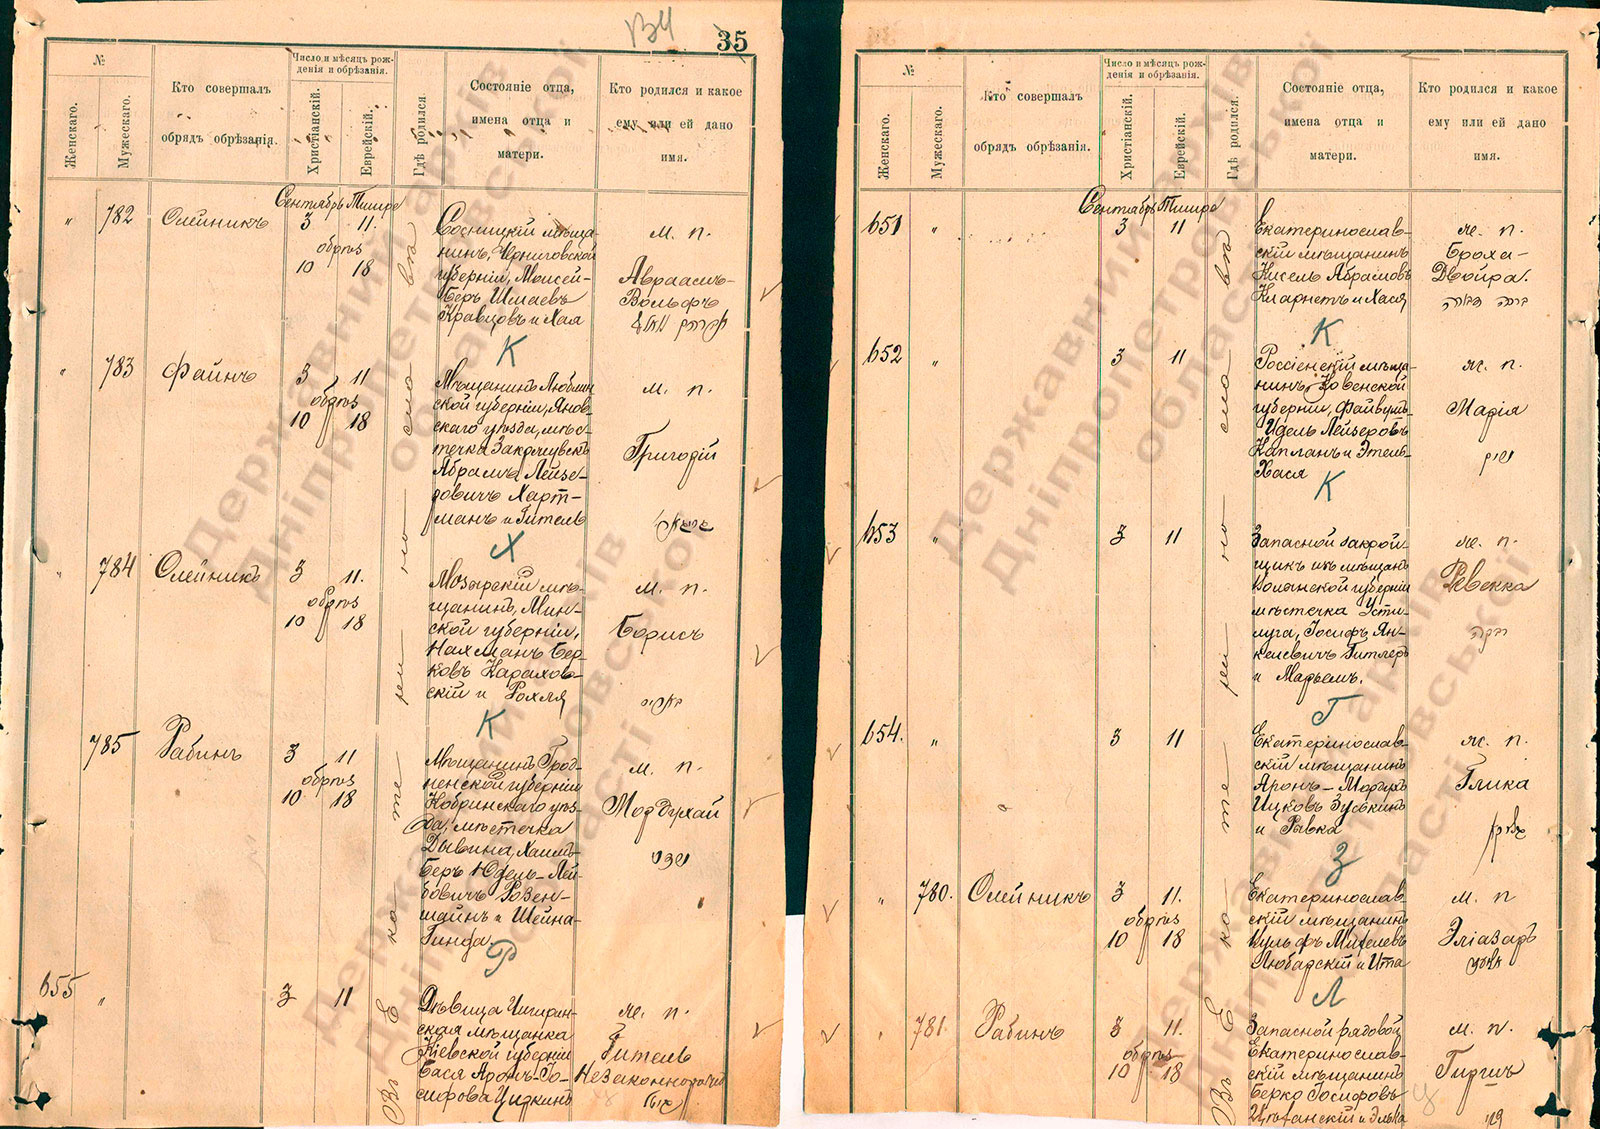 134
35
№
Женскаго.
Мужескаго.
Кто совершалъ
обрядъ обрѣзанія.
Число и мѣсяцъ рож-
денія и обрѣзанія.
Христіанскій.
Еврейскій.
Гдѣ родился.
Состояніе отца,
имена отца и
матери.
Кто родился и какое
ему или ей дано
имя.
Сентябрь Тишре
" 782 Олейникъ 3 11.
обрѣз
10 18
Сосницкій мѣща-
нинъ, Черниговской
губерніи, Мовсей-
Беръ Шмаевъ
Кравцовъ и Хая
м. п.
Авраамъ-
Вольфъ
К
" 783 Файнъ 3 11
обрѣз
10 18
Мѣщанинъ Люблин
ской губерніи, Янов-
скаго уѣзда, мѣс-
течка
Абрамъ Лейзе-
ровичъ Харт-
манъ и Гитель
м. п.
Григорій
Х
" 784 Олейникъ 3 11.
обрѣз
10 18
Мозырскій мѣ-
щанинъ, Мин-
ской губерніи,
Нахманъ Бер-
ковъ Карахов-
скій и Рохля
м. п.
Борисъ
К
785 Рабинъ 3 11
обрѣз
10 18
Мѣщанинъ Грод-
ненской губерніи
Кобринскаго уѣз-
да, мѣстечка
Дывина, Хаимъ-
Беръ Юдель-Лей-
бовичъ Розен-
шайнъ и Шейна-
м. п.
Мордухай
Р
655 " 3 11
Дѣвица Чигирин-
ская мѣщанка
Кіевской губерніи
Бася Аронъ-Іо-
сифова Циркинъ
ж. п.
Гитель
Незаконнорожд
Въ Екатеринославка
№
Женскаго.
Мужескаго.
Кто совершалъ
обрядъ обрѣзанія.
Число и мѣсяцъ рож-
денія и обрѣзанія.
Христіанскій.
Еврейскій.
Гдѣ родился.
Состояніе отца,
имена отца и
матери.
Кто родился и какое
ему или ей дано
имя.
Сентябрь Тишре
651 " 3 11
Екатеринослав-
скій мѣщанинъ
Кисель Абрамовъ
Кларнетъ и Хася
ж. п.
Броха-
Двойра.
ברכה דבורה
К
652 " 3 11
Россіенскій мѣща-
нинъ, Ковенской
губерніи, Файвушъ-
Идель Лейзеровъ
Капланъ и Этель-
Хася
ж. п.
Марія
К
653 " 3 11
Запасной закрой-
щикъ изъ мѣщанъ
Волынской губерніи
мѣстечка Усти-
луга, Іосифъ Ян-
келевичъ Гитлеръ
и Марьемъ.
ж. п.
Ревекка
רבקה
Г
654. " 3 11
Екатеринослав-
скій мѣщанинъ
Аронъ-Мордухъ
Ицковъ Зубкинъ
и Рывка
ж. п.
Глика
З
" 780. Олейникъ 3 11.
обрѣз
10 18
Екатеринослав-
скій мѣщанинъ
Вульфъ
Любарскій и Ита
м. п
Эліазаръ
Л
781. Рабинъ 3 11.
обрѣз
10 18
Запасной рядовой
Екатеринослав-
скій мѣщанинъ
Берко Іосифовъ
м. п.
Гиршъ
הירש
Ц
Въ Екатеринославка
Державний архів
Дніпропетровської
області